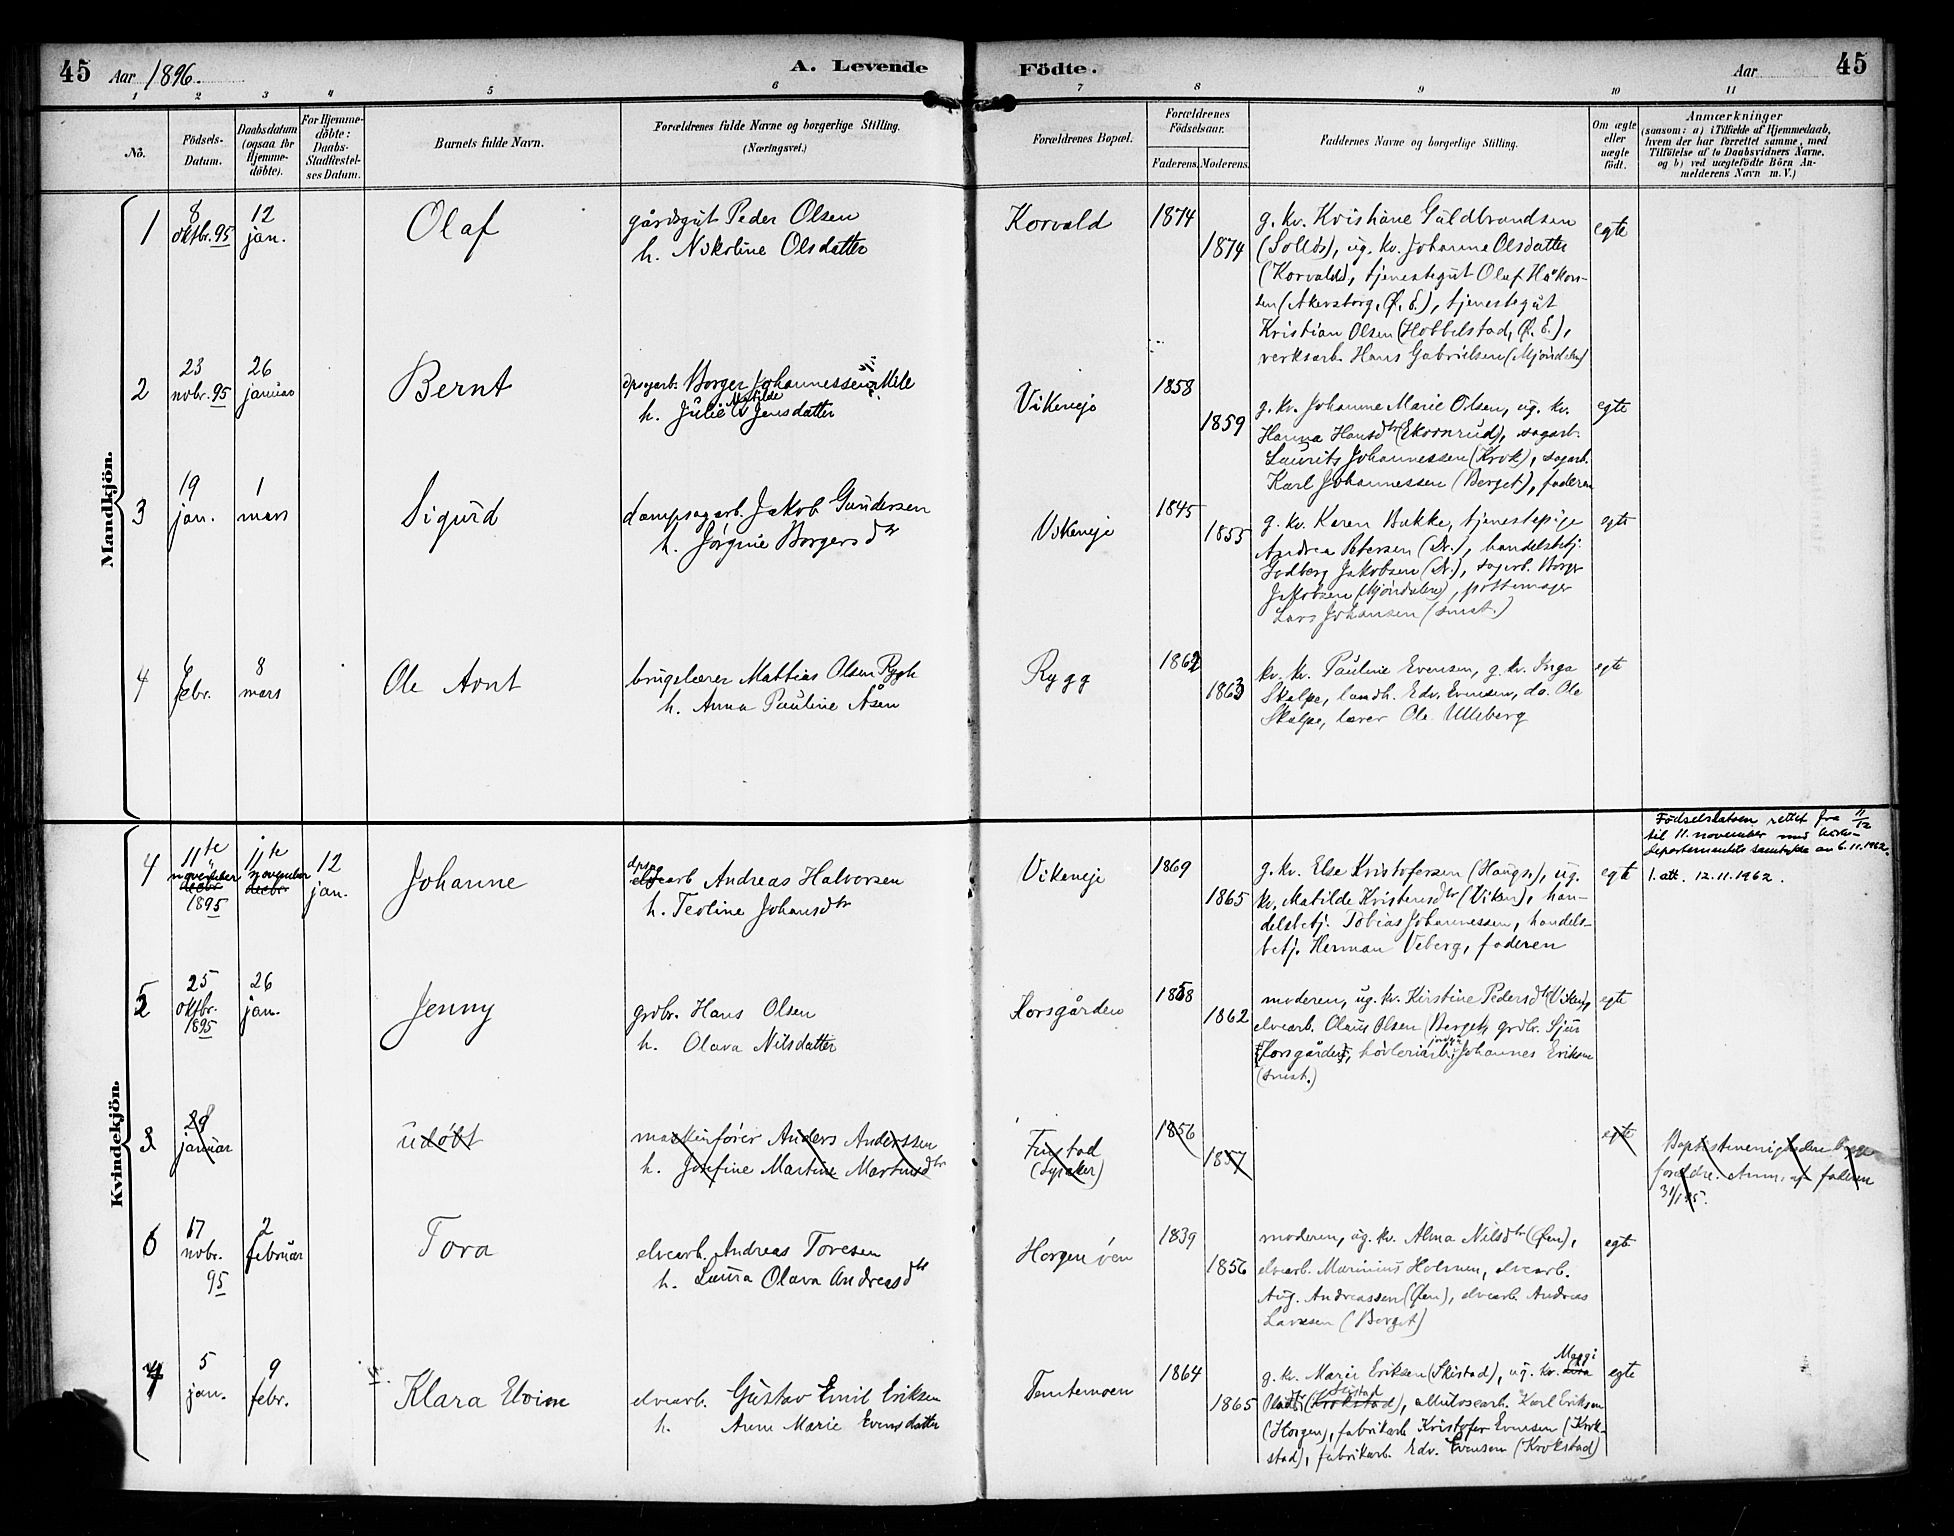 45 Aar 1896. A. Levende Födte. Aar 45
1 2 3 4 5 6 7 8 9 10 11
No.
Födsels-
Datum.
Daabsdatum
(ogsaa for
Hjemme-
döbte).
For Hjemme-
döbte:
Daabs-
Stadfæstel-
ses Datum.
Barnets fulde Navn.
Forældrenes fulde Navne og borgerlige Stilling.
(Næringsvei.)
Forældrenes Bopæl.
Forældrenes
Födselsaar.
Faderens. Moderens.
Faddernes Navne og borgerlige Stilling.
Om ægte
eller
uægte
födt.
Anmærkninger
(saasom: a) i Tilfælde af Hjemmedaab,
hvem der har forrettet samme, med
Tilföielse af to Daabsvidners Navne,
og b) ved uægtefödte Börn An-
melderens Navn m. V.)
Mandkjön.
1
8
oktbr. 95
12
jan.
Olaf
gårdsgut Peder Olsen
h. Nikoline Olsdatter
Korvald
1874
1874
g. kv. Kristiane Guldbrandsen
(Solløs), ug. kv. Johanne Olsdatter
(Korvald), tjenestegut Olaf Håkon-
sen (Akersborg, Ø. E.), tjenestegut
Kristian Olsen (Hobbelstad, Ø. E.),
verksarb. Hans Gabrielsen (Mjøndalen)
egte
2
23
nobr. 95
26
januar
Bernt
dpsagarb. Borger Johannessen Mile
h. Julie Matilde Jensdatter
Vikeneje
1858
1859
g. kv. Johanne Marie Olsen, ug. kv.
Hanna Hansdtr (Ekornrud), sagarb.
Laurits Johannessen (Krok), sagarb.
Karl Johannessen (Berget), faderen
egte
3
19
jan.
1
mars
Sigurd
dampsagarb. Jakob Gundersen
h. Jørgine Borgersdtr
Vikeneje
1845
1855
g. kv. Karen Bakke, tjenestepige
Andrea Petersen (Dr.), handelsbetj.
Godberg Jakobsen (Dr.), sagarb. Borger
Jakobsen (Mjøndalen), pottemager
Lars Johansen (smst.)
egte
4
6
febr.
8
mars
Ole Arnt
brugseier Mattias Olsen Rygh
h. Anna Pauline Åsen
Rygg
1862
1863
kv. Pauline Evensen, g. kv. Inga
Skalpe, landh. Edv. Evensen, do. Ole
Skalpe, lærer Ole Ulleberg
egte
Kvindekjön.
4
11te
november
decbr
1895
11te
november
decbr
12
jan.
Johanne
dpsagarb Andreas Halvorsen
h. Teoline Johansdtr
Vikeneje
1869
1865
g. kv. Else Kristofersen (Haugs), ug.
kv. Matilde Kristensdtr (Viken), han-
delsbetj. Tobias Johannessen, handels-
betj. Herman Veberg, faderen
egte
Fødselsdatoen rettet fra 11/12
til 11. november med Kirke-
departementets samtykke av 6.11.1962.
1. att. 12.11.1962.
5
25
oktbr.
1895
26
jan.
Jenny
grdbr. Hans Olsen
h. Olava Nilsdatter
Horsgården
1858
1862
moderen, ug. kv. Kirstine Pedersdtr (Viken),
elvearb. Olaus Olsen (Berget), grdbr. Sjur
(Horsgården), høvleriarb. Johannes Eriksen
(smst.)
egte
3
28
januar
udøbt
maskinfører Anders Anderssen
h. Josefine Martine Martinsdtr
Finstad
(Lysaker)
1856
1857
egte
Baptistmenigheden begge
forældre. Anm. af faderen
31/1 95.
6
17
nobr.
95
2
februar
Tora
elvearb. Andreas Toresen
h. Laura Olava Andreasdtr
Horgenøen
1839
1856
moderen, ug. kv. Alma Nilsdtr (Øen),
elvearb. Marinius Holmen, elvearb.
Aug. Andreassen (Øen), elvearb. Andreas
Larsen (Berget)
egte
7
5
jan.
9
febr.
Klara Elvine
elvearb. Gustav Emil Eriksen
h. Anne Marie Evensdatter
Temtemoen
1864
1865
g. kv. Marie Eriksen (Skistad), ug. kv. Maggi
Olsdtr (Krokstad), cellulosearb. Karl Eriksen
(Horgen), fabrikarb. Kristofer Evensen (Krok-
stad), fabrikarb. Edv. Evensen (Krokstad)
egte